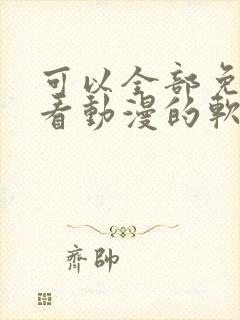 可以全部免
看動漫的軟
齊帥